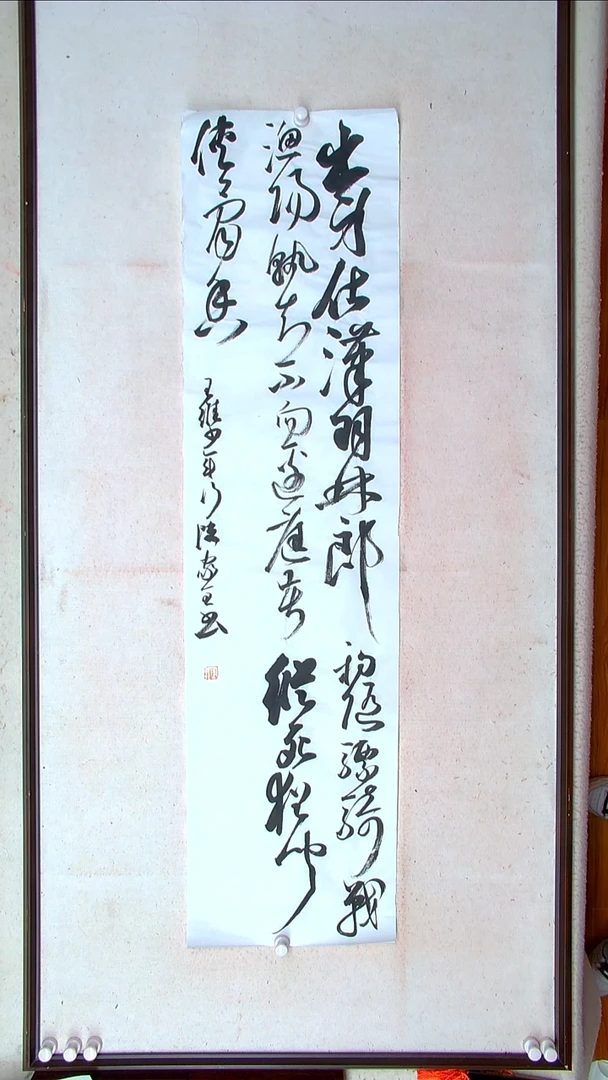 出身仕漢羽林郎初隨驃騎戰
漁陽孰知不向邊庭苦縱死猶聞
俠骨香
王維少年行 書